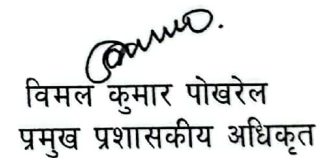 विमल कुमार पोखरेल
प्रमुख प्रशासकीय अधिकृत